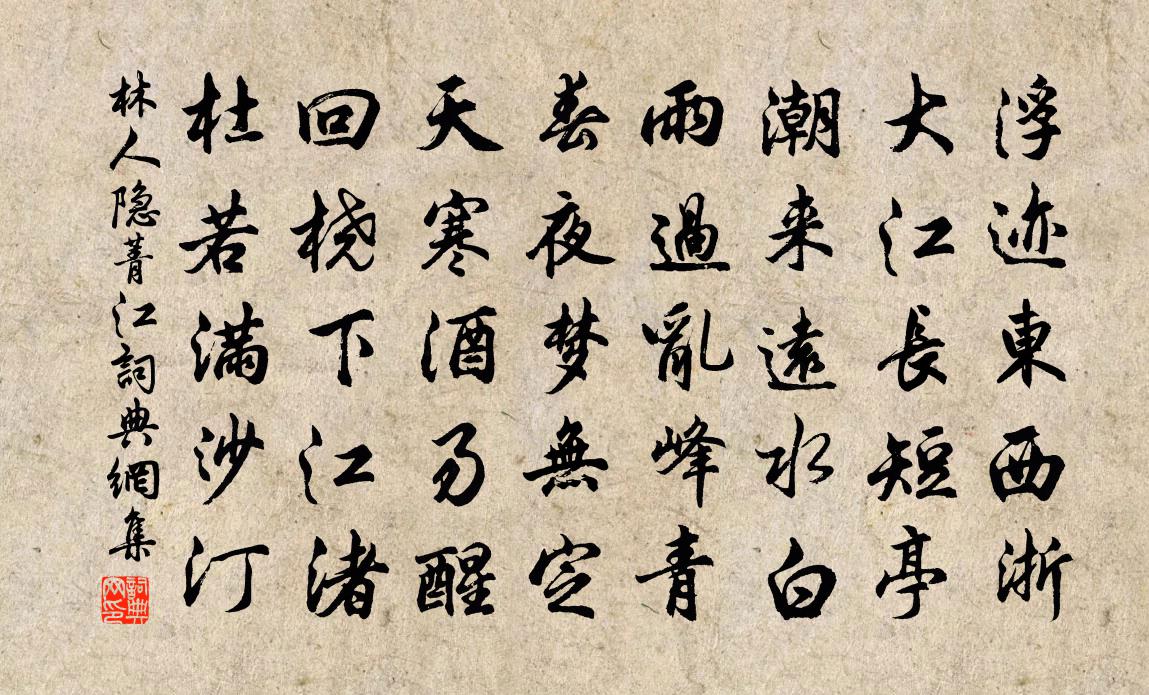 浮迹東西浙
大江長短亭
潮来遠水白
雨過亂峰青
春夜梦無定
天寒酒易醒
回桡下江渚
杜若满沙汀
林人隐菁江詞典網集
詞典网印